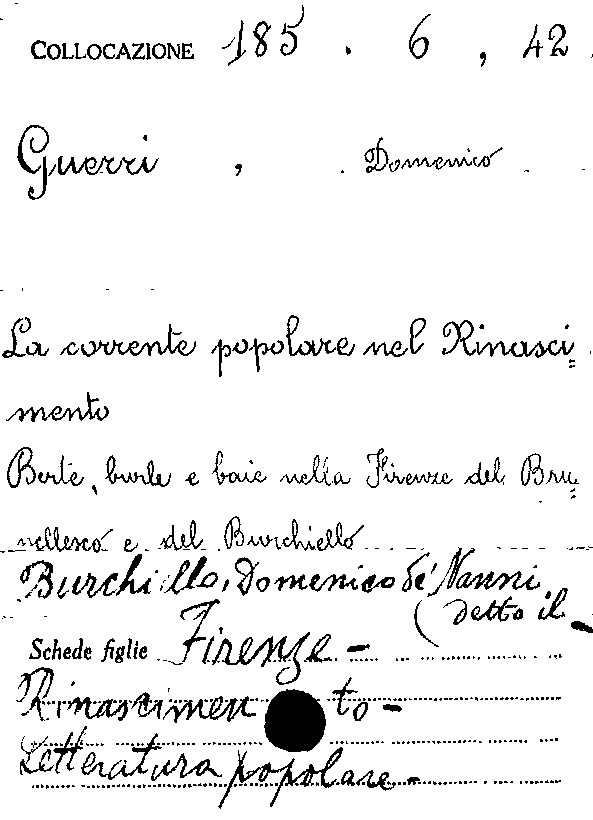 COLLOCAZIONE 185 . 6 , 42
Guerri , Domenico
La corrente popolare nel Rinasci=
mento
Berte, burle e baie nella Firenze del Bru=
nellesco e del Burchiello
Burchiello, Domenico de' Nanni
(detto il -
Schede figlie Firenze -
Rinascimento -
Letteratura popolare -